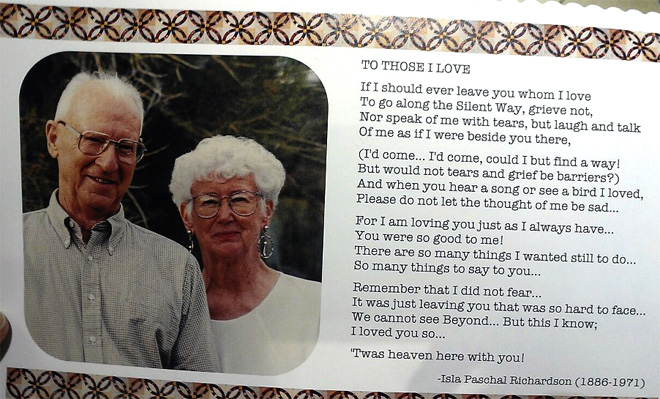 TO THOSE I LOVE
If I should ever leave you whom I love
To go along the Silent Way, grieve not,
Nor speak of me with tears, but laugh and talk
Of me as if I were beside you there,
(I'd come... I'd come, could I but find a way!
But would not tears and grief be barriers?)
And when you hear a song or see a bird I loved,
Please do not let the thought of me be sad...
For I am loving you just as I always have...
You were so good to me!
There are so many things I wanted still to do...
So many things to say to you...
Remember that I did not fear...
It was just leaving you that was so hard to face...
We cannot see Beyond... But this I know;
I loved you so...
'Twas heaven here with you!
-Isla Paschal Richardson (1886-1971)